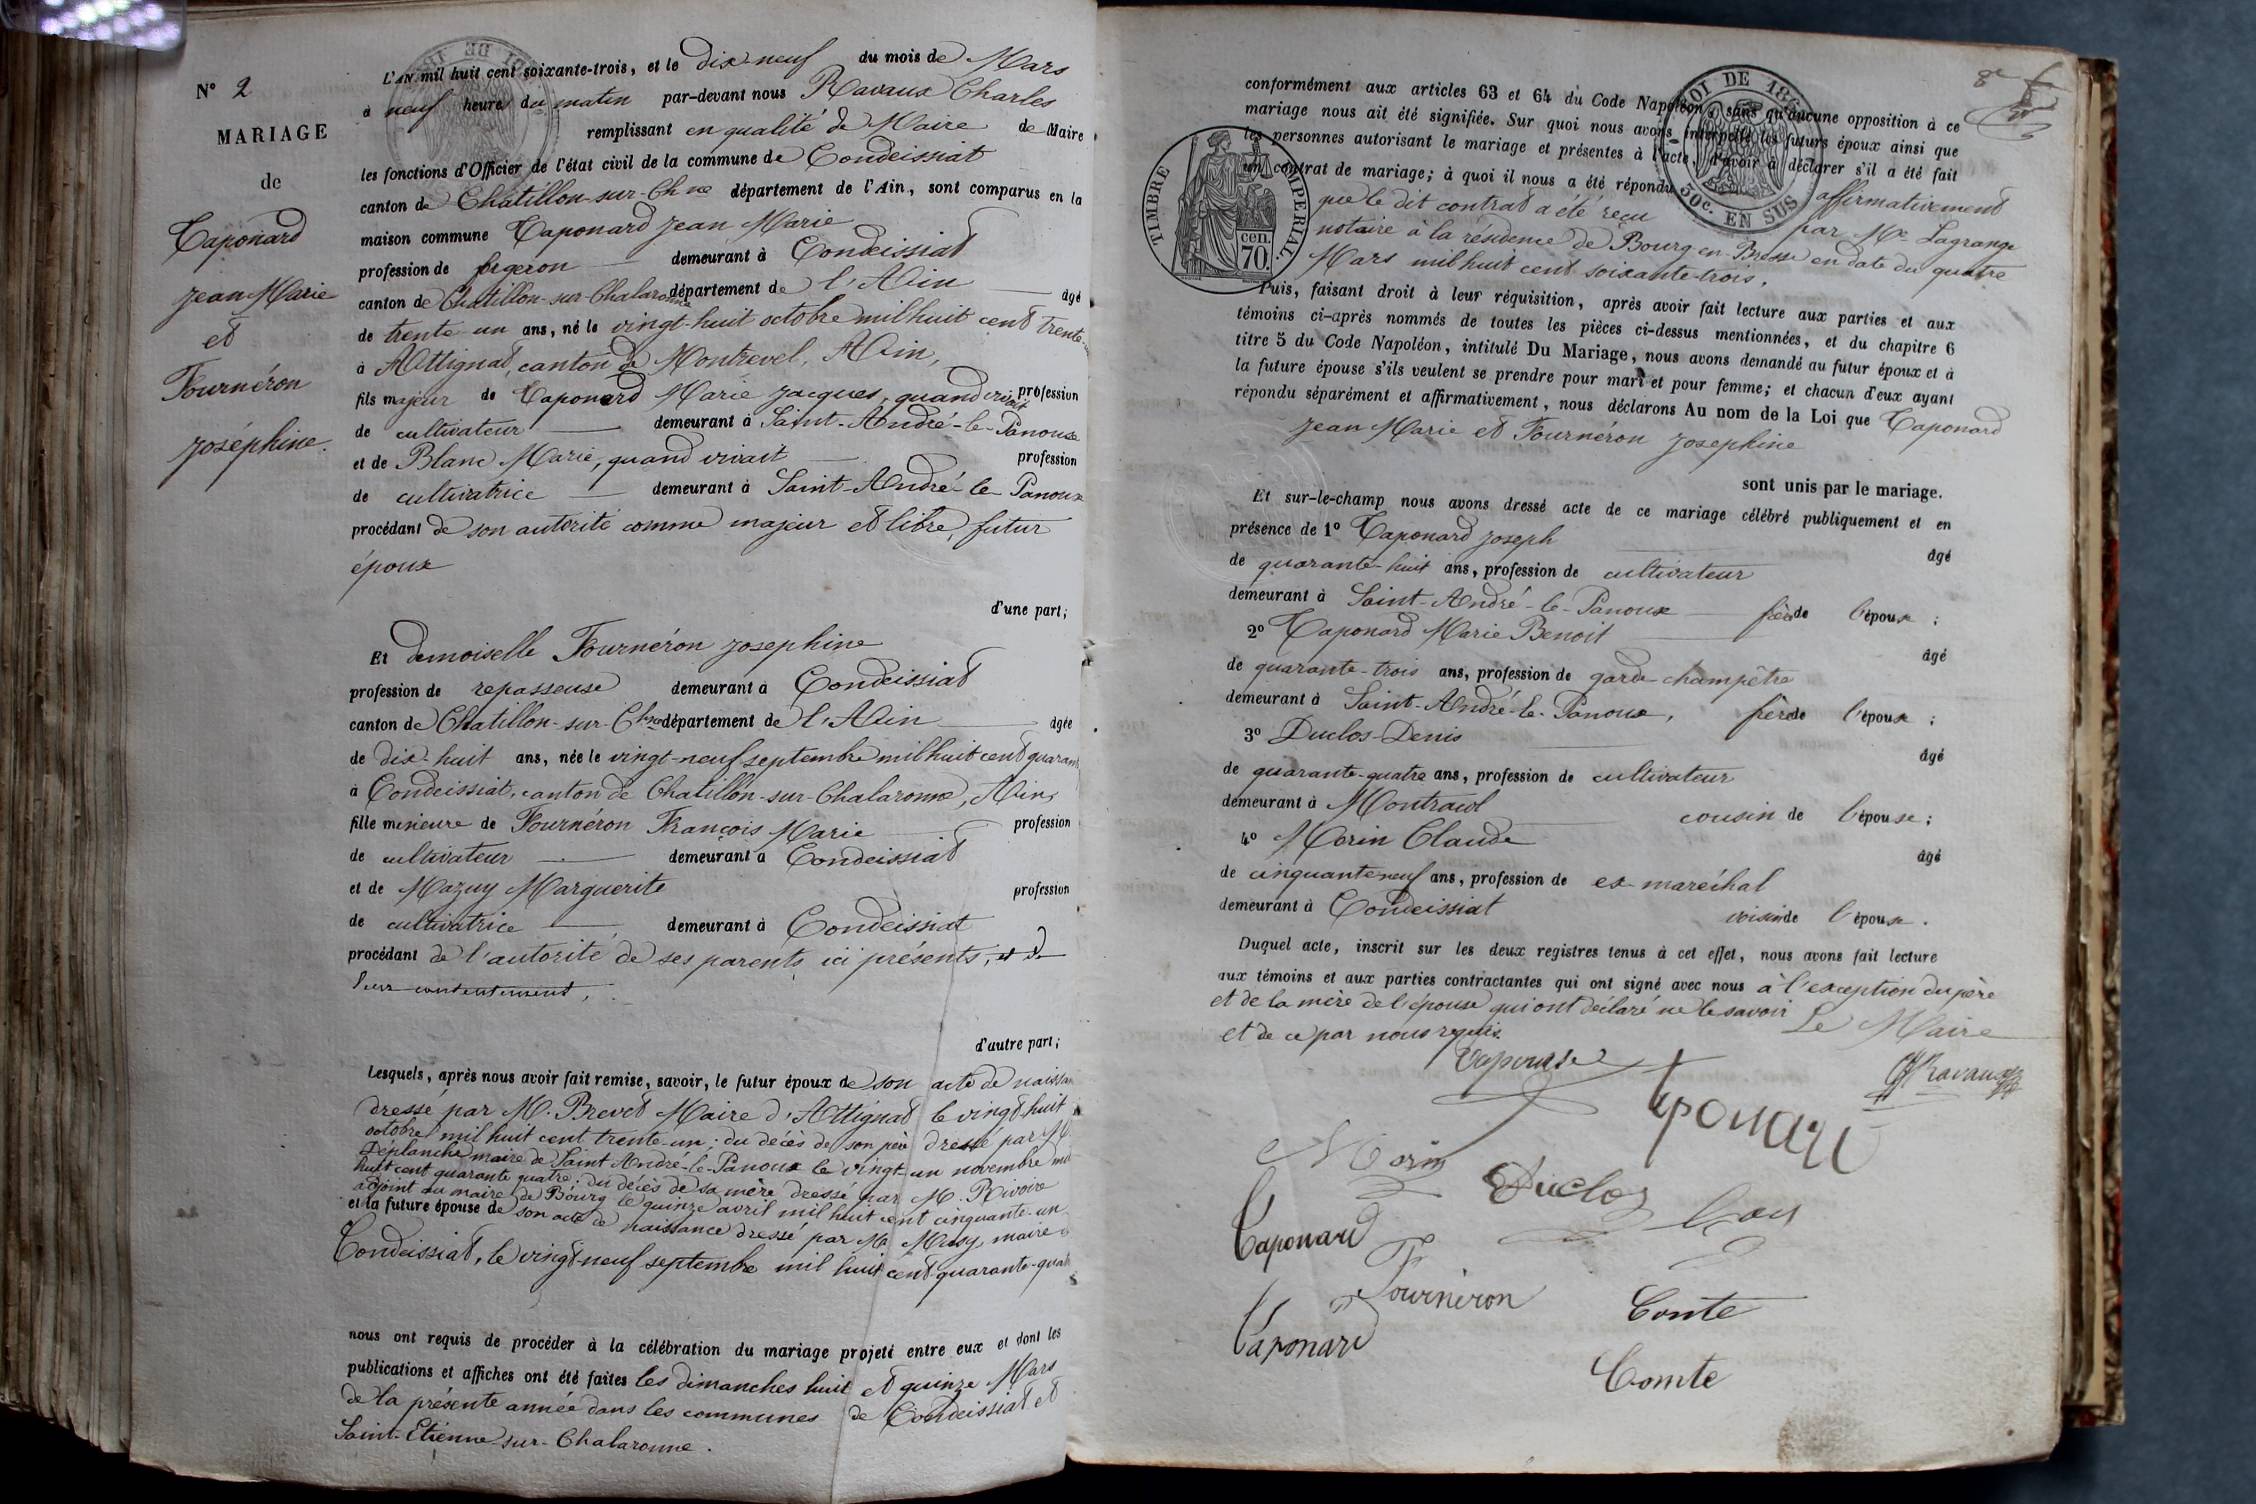 N° 2
MARIAGE
de
Taponard
Jean Marie
et
Fournéron
Joséphine.
L'AN mil huit cent soixante-trois, et le dix neuf du mois de Mars
à neuf heures du matin par-devant nous Ravaux Charles
remplissant en qualité de Maire de Maire
les fonctions d'Officier de l'état civil de la commune de Condeissiat
canton de Chatillon-sur-Chne département de l'Ain, sont comparus en la
maison commune Taponard Jean Marie
profession de forgeron demeurant à Condeissiat
canton de Chatillon-sur-Chalaronne département de l'Ain âgé
de trente un ans, né le vingt-huit octobre mil huit cent trente-
à Attignat, canton de Montrevel, Ain,
fils majeur de Taponard Marie Jacques, quand vivait profession
de cultivateur demeurant à Saint-André-le-Panoux
et de Blanc Marie, quand vivait profession
de cultivatrice demeurant à Saint-André-le Panoux
procédant de son autorité comme majeur et libre, futur
époux
d'une part;
Et demoiselle Fournéron Josephine
profession de repasseuse demeurant à Condeissiat
canton de Chatillon-sur-Chne département de l'Ain âgée
de dix-huit ans, née le vingt-neuf septembre mil huit cent quarante
à Condeissiat, canton de Chatillon-sur-Chalaronne, Ain,
fille mineure de Fournéron François Marie profession
de cultivateur demeurant à Condeissiat
et de Mazuy Marguerite profession
de cultivatrice demeurant à Condeissiat
procédant de l'autorité de ses parents ici présents, et de
leur contentement,
d'autre part;
Lesquels, après nous avoir fait remise, savoir, le futur époux de son acte de naissan
dressé par M. Brevet Maire d'Attignat le vingt huit
octobre mil huit cent trente-un; du décès de son père dressé par M.
Déplanche maire de Saint André-le-Panoux le vingt-un novembre mil
huit cent quarante quatre; du décès de sa mère dressé par M. Rivoire
adjoint au maire de Bourg le quinze avril mil huit cent cinquante-un
et la future épouse de son acte de naissance dressé par M. maire
Condeissiat, le vingt-neuf septembre mil huit cent-quarante-quat
nous ont requis de procéder à la célébration du mariage projeté entre eux et dont les
publications et affiches ont été faites les dimanches huit et quinze Mars
de la présente année dans les communes de Condeissiat et
Saint-Etienne-sur-Chalaronne.
8e
conformément aux articles 63 et 64 du Code Napoléon, sans qu'aucune opposition à ce
mariage nous ait été signifiée. Sur quoi nous avons interpellé les futurs époux ainsi que
les personnes autorisant le mariage et présentes à l'acte, d'avoir à déclarer s'il a été fait
un contrat de mariage; à quoi il nous a été répondu affirmativement
que le dit contrat a été reçu par Me Lagrange
notaire à la résidence de Bourg en Bresse en date du quatre
Mars mil huit cent soixante-trois.
LOI DE 186
50c. EN SUS
TIMBRE IMPERIAL
cen.
70.
Puis, faisant droit à leur réquisition, après avoir fait lecture aux parties et aux
témoins ci-après nommés de toutes les pièces ci-dessus mentionnées, et du chapitre 6
titre 5 du Code Napoléon, intitulé Du Mariage, nous avons demandé au futur époux et à
la future épouse s'ils veulent se prendre pour mari et pour femme; et chacun d'eux ayant
répondu séparément et affirmativement, nous déclarons Au nom de la Loi que Taponard
Jean Marie et Fournéron Josephine
sont unis par le mariage.
Et sur-le-champ nous avons dressé acte de ce mariage célébré publiquement et en
présence de 1° Taponard Joseph âgé
de quarante-huit ans, profession de cultivateur
demeurant à Saint-André-le-Panoux frère de l'époux;
2° Taponard Marie Benoit âgé
de quarante-trois ans, profession de garde-champêtre
demeurant à Saint-André-le-Panoux, frère de l'époux;
3° Duclos Denis âgé
de quarante-quatre ans, profession de cultivateur
demeurant à Montracol cousin de l'épouse;
4° Morin Claude âgé
de cinquante neuf ans, profession de ex-maréchal
demeurant à Condeissiat voisin de l'épouse.
Duquel acte, inscrit sur les deux registres tenus à cet effet, nous avons fait lecture
aux témoins et aux parties contractantes qui ont signé avec nous à l'exception du père
et de la mère de l'épouse qui ont déclaré ne le savoir
et de ce par nous requis. Le Maire
Ravaux
Morin
Duclos
Taponard
Fournéron
Conte
Taponard
Comte